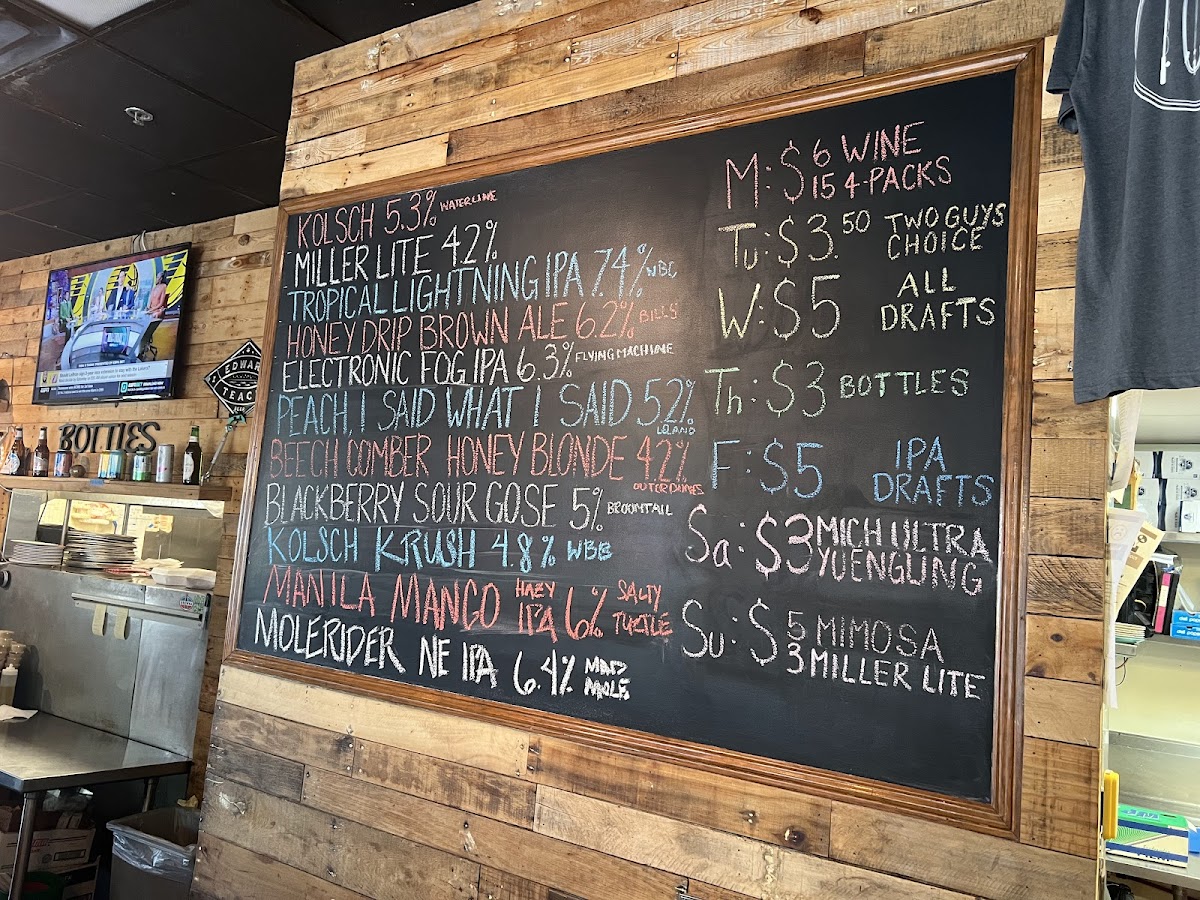 KOLSCH 5.3% WATERLINE
MILLER LITE 4.2%
TROPICAL LIGHTNING IPA 7.4% WBC
HONEY DRIP BROWN ALE 6.2% BILLS
ELECTRONIC FOG IPA 6.3% FLYING MACHINE
PEACH, I SAID WHAT I SAID 5.2%
LELAND
BEECH COMBER HONEY BLONDE 4.2%
OUTER DUNES
BLACKBERRY SOUR GOSE 5% BROOMTAIL
KOLSCH KRUSH 4.8% WBC
MANILA MANGO HAZY IPA 6% SALTY TURTLE
MOLERIDER NE IPA 6.4% MAD MOLE
M: $6 WINE
15 4-PACKS
Tu: $3.50 TWO GUYS CHOICE
W: $5 ALL DRAFTS
Th: $3 BOTTLES
F: $5 IPA DRAFTS
Sa: $3 MICH ULTRA
YUENGLING
Su: $5 MIMOSA
3 MILLER LITE
EDWARD
TEACH
BOTTLES